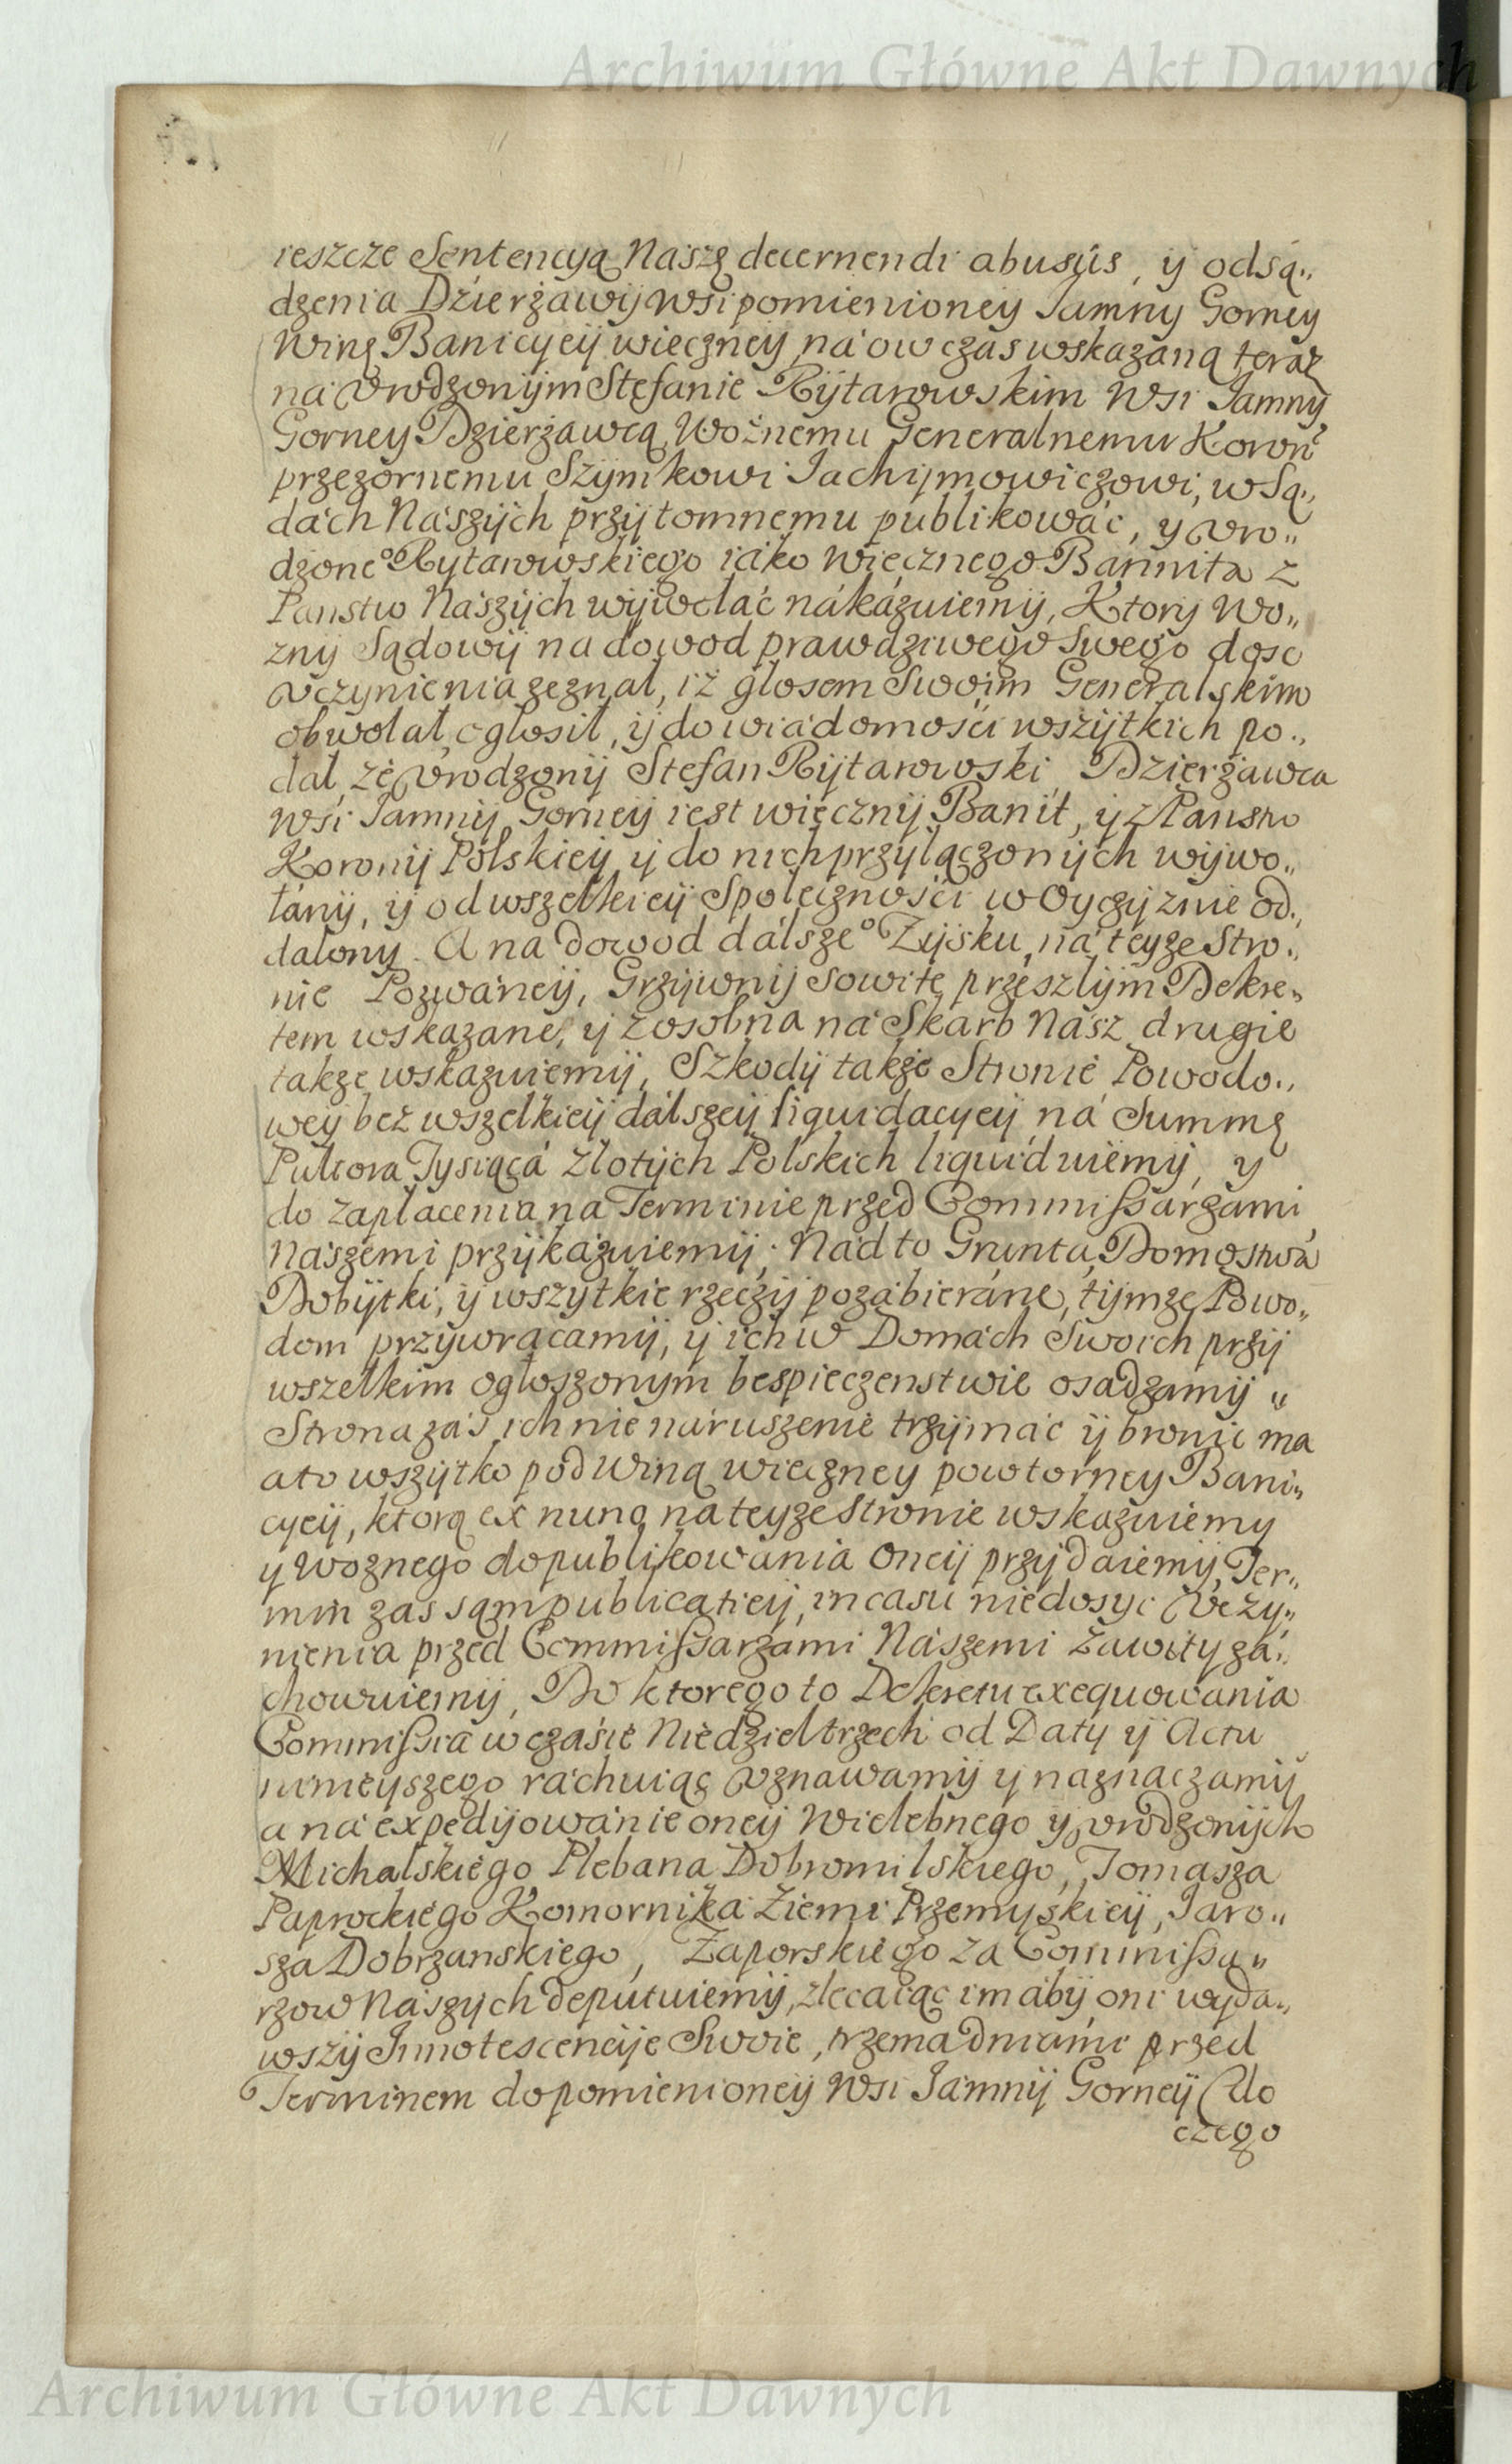 Archiwum Główne Akt Dawnych
ieszcze Sentencyą Naszę decernendi abusûs, ÿ odsą„
dzenia Dzierżawÿ wsi pomienioney Jamny Gorney
Winę Banicyeÿ wieczney, ná ow czas wskazaną teraz
ná Vrodzonÿm Stefanie Rÿtarowskim Wsi Jamny
Gorney Dzierżawcą, Woźnemu Generalnemu Koron̄
przezornemu Szymkowi Jachÿmowiczowi, w Są„
dách Nászÿch przÿtomnemu publikowáć, y Vro„
dzone° Rytarowskiego iáko wiecznego Bannita z
Panstw Nászÿch wÿwołáć nákázuiemÿ, Ktory Wo„
znÿ Sądowÿ na dowod prawdziwego swego dosc
Vczynienia zeznał, iż głosem Swoim Generalskim
obwołał, ogłosił, ÿ do wiádomości wszÿtkich po„
dał, że Vrodzonÿ Stefan Rÿtarowski Dzierżawca
Wsi Jamnÿ Gorney iest wiecznÿ Banit, ÿ z Panstw
Koronÿ Polskieÿ ÿ do nich przyłączonÿch wÿwo„
łánÿ, ÿ od wszelkieÿ Społeczności w Oyczÿznie od„
dalony. A na dowod dálsze° Zÿsku, ná teyze Stro„
nie Pozwáneÿ, Grzÿwnÿ sowite przeszłÿm Dekre„
tem wskazane, ÿ zosobna ná Skárb Nász drugie
także wskazuiemÿ, Szkodÿ także Stronie Powodo„
wey bez wszelkieÿ dálszeÿ liquidacyeÿ ná Summę
Pułtora Tysiącá Złotÿch Polskich liquiduiemÿ, y
do zapłacenia na Terminie przed Commissarzami
Nászemi przÿkázuiemÿ; Nád to Grunta, Domostwá
Dobÿtki, ÿ wszytkie rzeczÿ pozábieráne, tÿmze Powo„
dom przÿwracamÿ, ÿ ich w Domách Swoich przÿ
wszelkim ogłoszonym bespieczenstwie osadzamÿ „
Strona zás ich nienáruszenie trzÿmáć ÿ bronic ma
a to wszÿtko pod winą wieczney powtorney Bani„
cyeÿ, ktorą ex nunc na teyze Stronie wskazuiemy
ÿ Woznego do publikowánia oneÿ przÿdaiemÿ, Ter„
min zas sąm publicatieÿ, in casu niedosyć Vczy„
nienia przed Commissarzámi Nászemi zawity zá„
chowuiemÿ, Do ktorego to Dekretu exequowánia
Commissiá w czásie Niedziel trzech od Daty ÿ Actu
ninieyszego ráchuiąc Vznawamÿ ÿ naznaczamÿ
a ná expedÿowánie oneÿ Wielebnego y Vrodzonÿch
Michalskiego Plebana Dobromilskiego, Tomasza
Paprockiego Komornika Ziemi Przemyskieÿ, Jaro„
sza Dobrzanskiego, Zaporskiego za Commissa„
rzow Nászych deputuiemÿ, zlecaiąc im ábÿ oni wyda„
wszÿ Innotescencÿe Swoie, trzema dniámi przed
Terminem do pomienioney Wsi Jámnÿ Gorneÿ (do
czego
Archiwum Główne Akt Dawnych